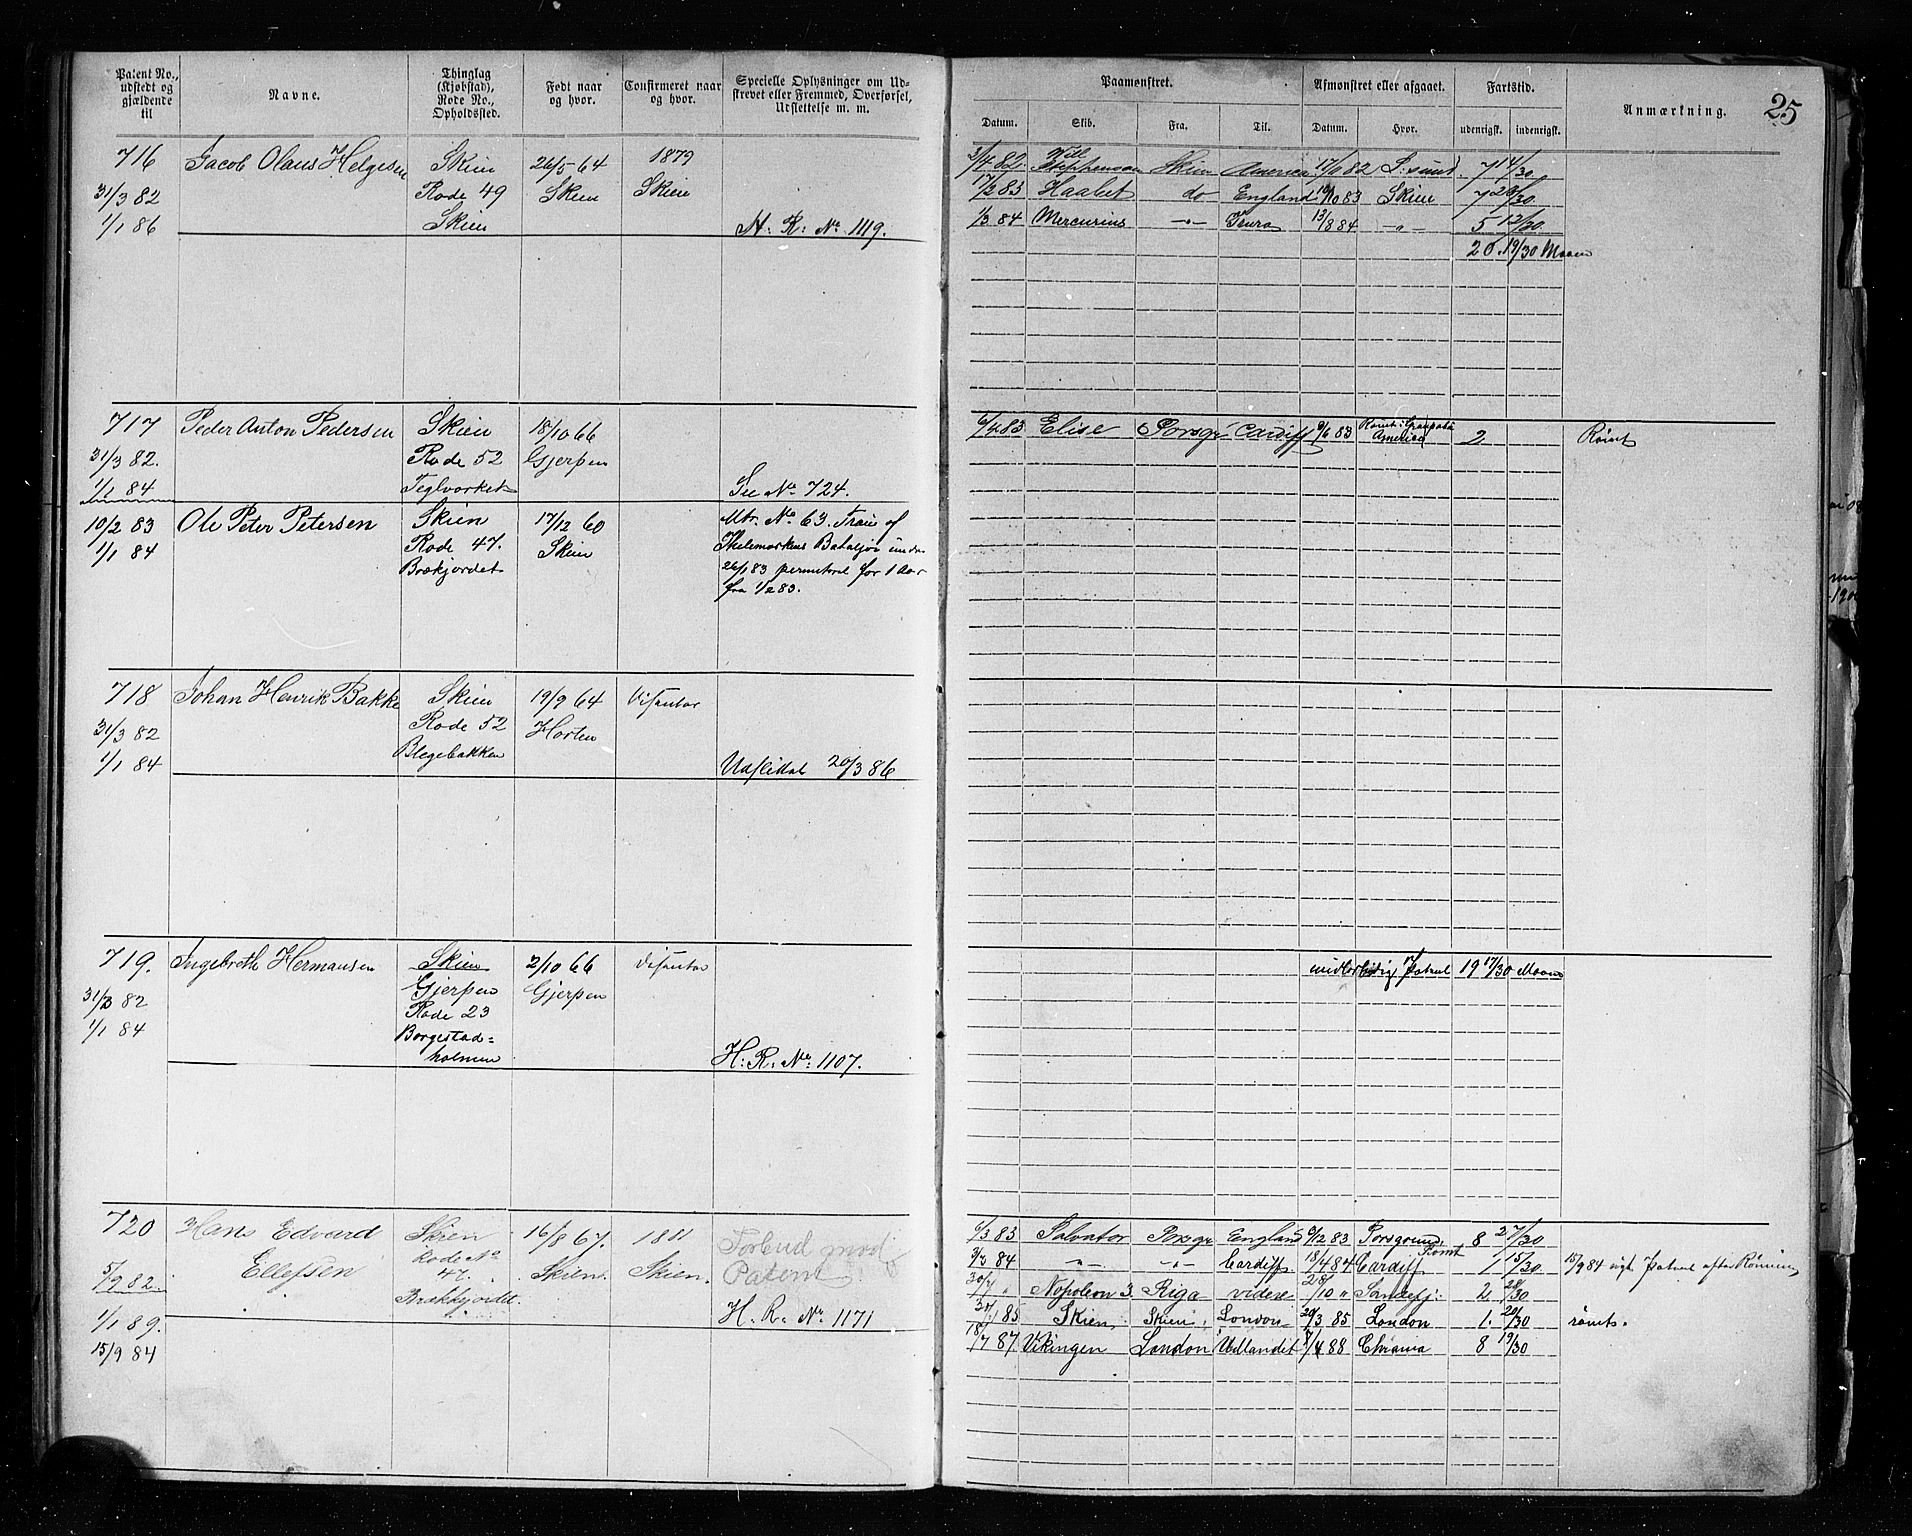 Patent No., udstedt og gjældende til
Navne.
Thinglag (Kjøbstad), Rode No., Opholdssted.
Født naar og hvor.
Confirmeret naar og hvor.
Specielle Oplysninger om Udstrevet eller Fremmed, Overførsel, Udslettelse m. m.
Paamønstret.
Afmønstret eller afgaaet.
Fartstid.
Anmærkning.
25
Datum.
Skib.
Fra.
Til.
Datum.
Hvor.
udenrigsk.
indenrigsk.
716 Jacob Olaus Helgesen Skien 26/5 64 1879
31/3 82 Rode 49 Skien Skien
1/1 86 Skien H. R. No. 1119.
Skien America S:sund 7 14/30
17/3 83 Haabet do England 83 Skien 7
1/3 84 Mercurius -"- 13/8 84 -"- 5 12/30
20. 19/30 Maaned
717 Peder Anton Pedersen Skien 18/10 66
31/3 82. Rode 52 Gjerpen
1/1 84 Teglværket See No 724.
Elise Porsgr Cardiff 83 America 2 Rømt
10/2 83 Ole Peter Petersen Skien 17/12 60 Mtr. No 63. Train af
1/1 84 Rode 47. Skien Thelemarkens Bataljon under
Brækjordet 26/1 83 permitteret for 1 Aar
fra 1/2 83.
718 Johan Henrik Bakke Skien 19/9 64
31/3 82 Rode 52 Horten
1/1 84 Blegebakken Udslettet 20/3 86
719. Ingebreth Hermansen Skien 2/10 66
31/3 82 Gjerpen Gjerpen
1/1 84 Rode 23
Borgestad=
holmen H. R. No. 1107.
Patent 19 17/30 Maaned
720 Hans Edvard Skien 16/8 67. 1881 Forbud mod
5/9 82 Ellefsen Rode No 47. Skien. Skien. Patent
Brækkjordet
1/1 89. H. R. No. 1171
15/9 84
6/3 83 Salvator Porsgr England 6/12 83 Porsgrund 8 27/30
3/3 84 -"- -"- Cardiff 18/4 84 Cardiff Rømt 1 15/30 15/9 84 nyt Patent efter Rømning
Napoleon 3. Riga videre /10 " Sandefj: 2 28/30
85 Skien, Skien, London 20/3 85 London 1. 20/30 rømt.
18/7 87 Vikingen London Udlandet /4 88 Chrania 8 19/30